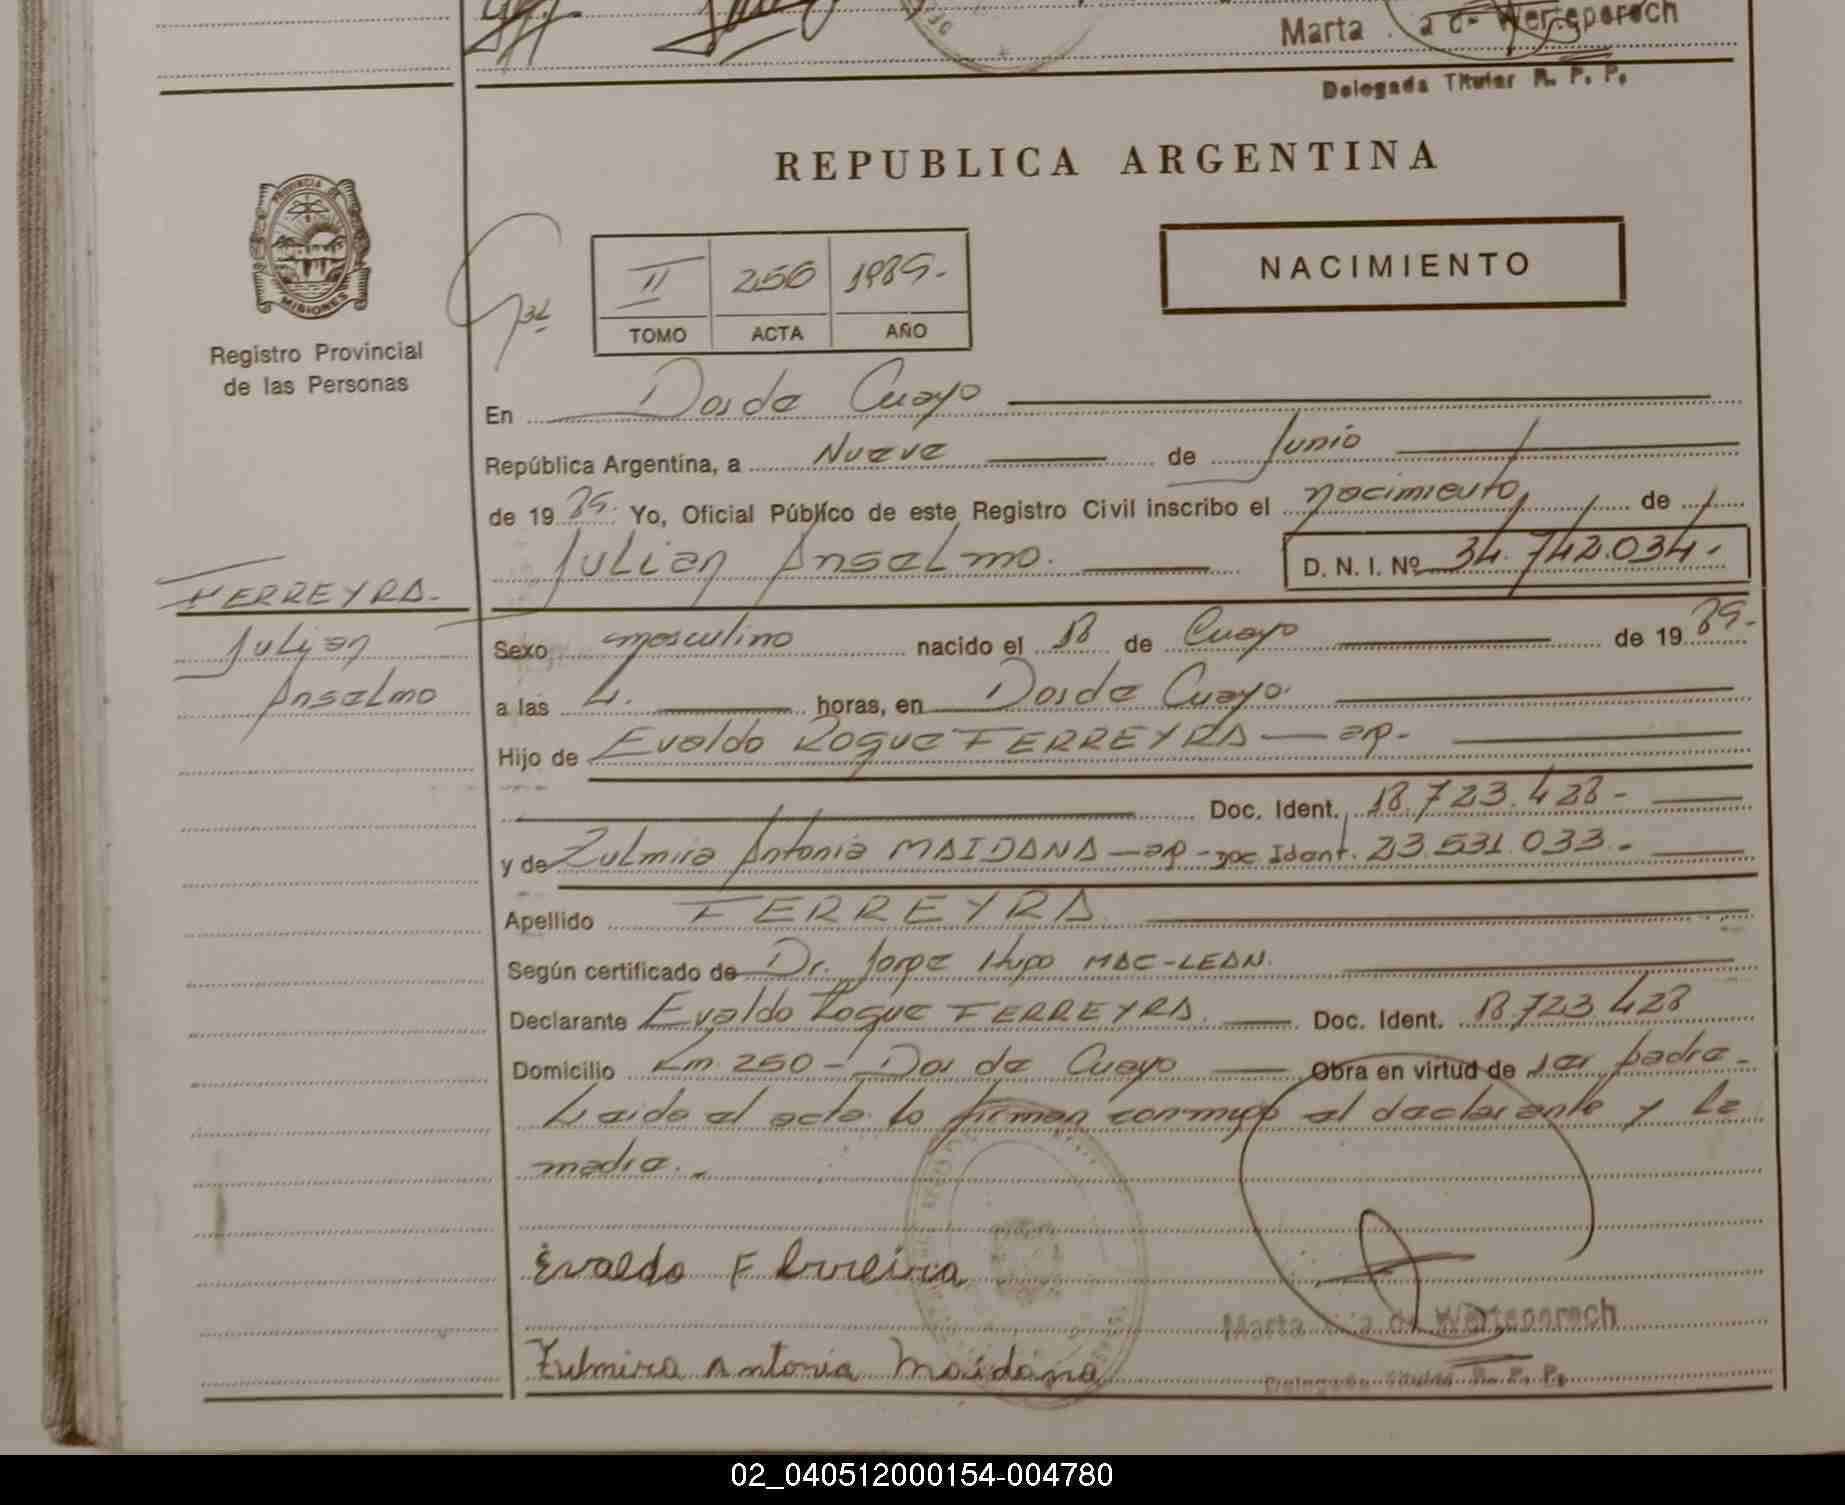 Marta a de Werteporoch
Delegada Titular R. P. P.
REPUBLICA ARGENTINA
PROVINCIA DE
MISIONES
Registro Provincial
de las Personas
II 256 1989.-
TOMO ACTA AÑO
NACIMIENTO
En Dos de Mayo
República Argentina, a Nueve de Junio
de 1989. Yo, Oficial Público de este Registro Civil inscribo el nacimiento de
Julian Anselmo. D. N. I. Nº 34.742.034.-
FERREYRA.-
Julian
Anselmo
Sexo masculino nacido el 18 de Mayo de 1989.-
a las 4. horas, en Dos de Mayo.
Hijo de Evaldo Roque FERREYRA — ar.-
Doc. Ident. 18.723.428-
y de Zulmira Antonia MAIDANA — ar - Doc Ident. 23.531.033.-
Apellido FERREYRA
Según certificado de Dr. Jorge Hugo MAC-LEAN.
Declarante Evaldo Roque FERREYRA. Doc. Ident. 18.723.428
Domicilio Km. 250 - Dos de Mayo Obra en virtud de ser padre-
Leida el acta lo firman conmigo el declarante y la
madre.-
Evaldo Ferreira
Marta a de Werteporoch
Zulmira Antonia Maidana
Delegada Titular R. P. P.
02_040512000154-004780